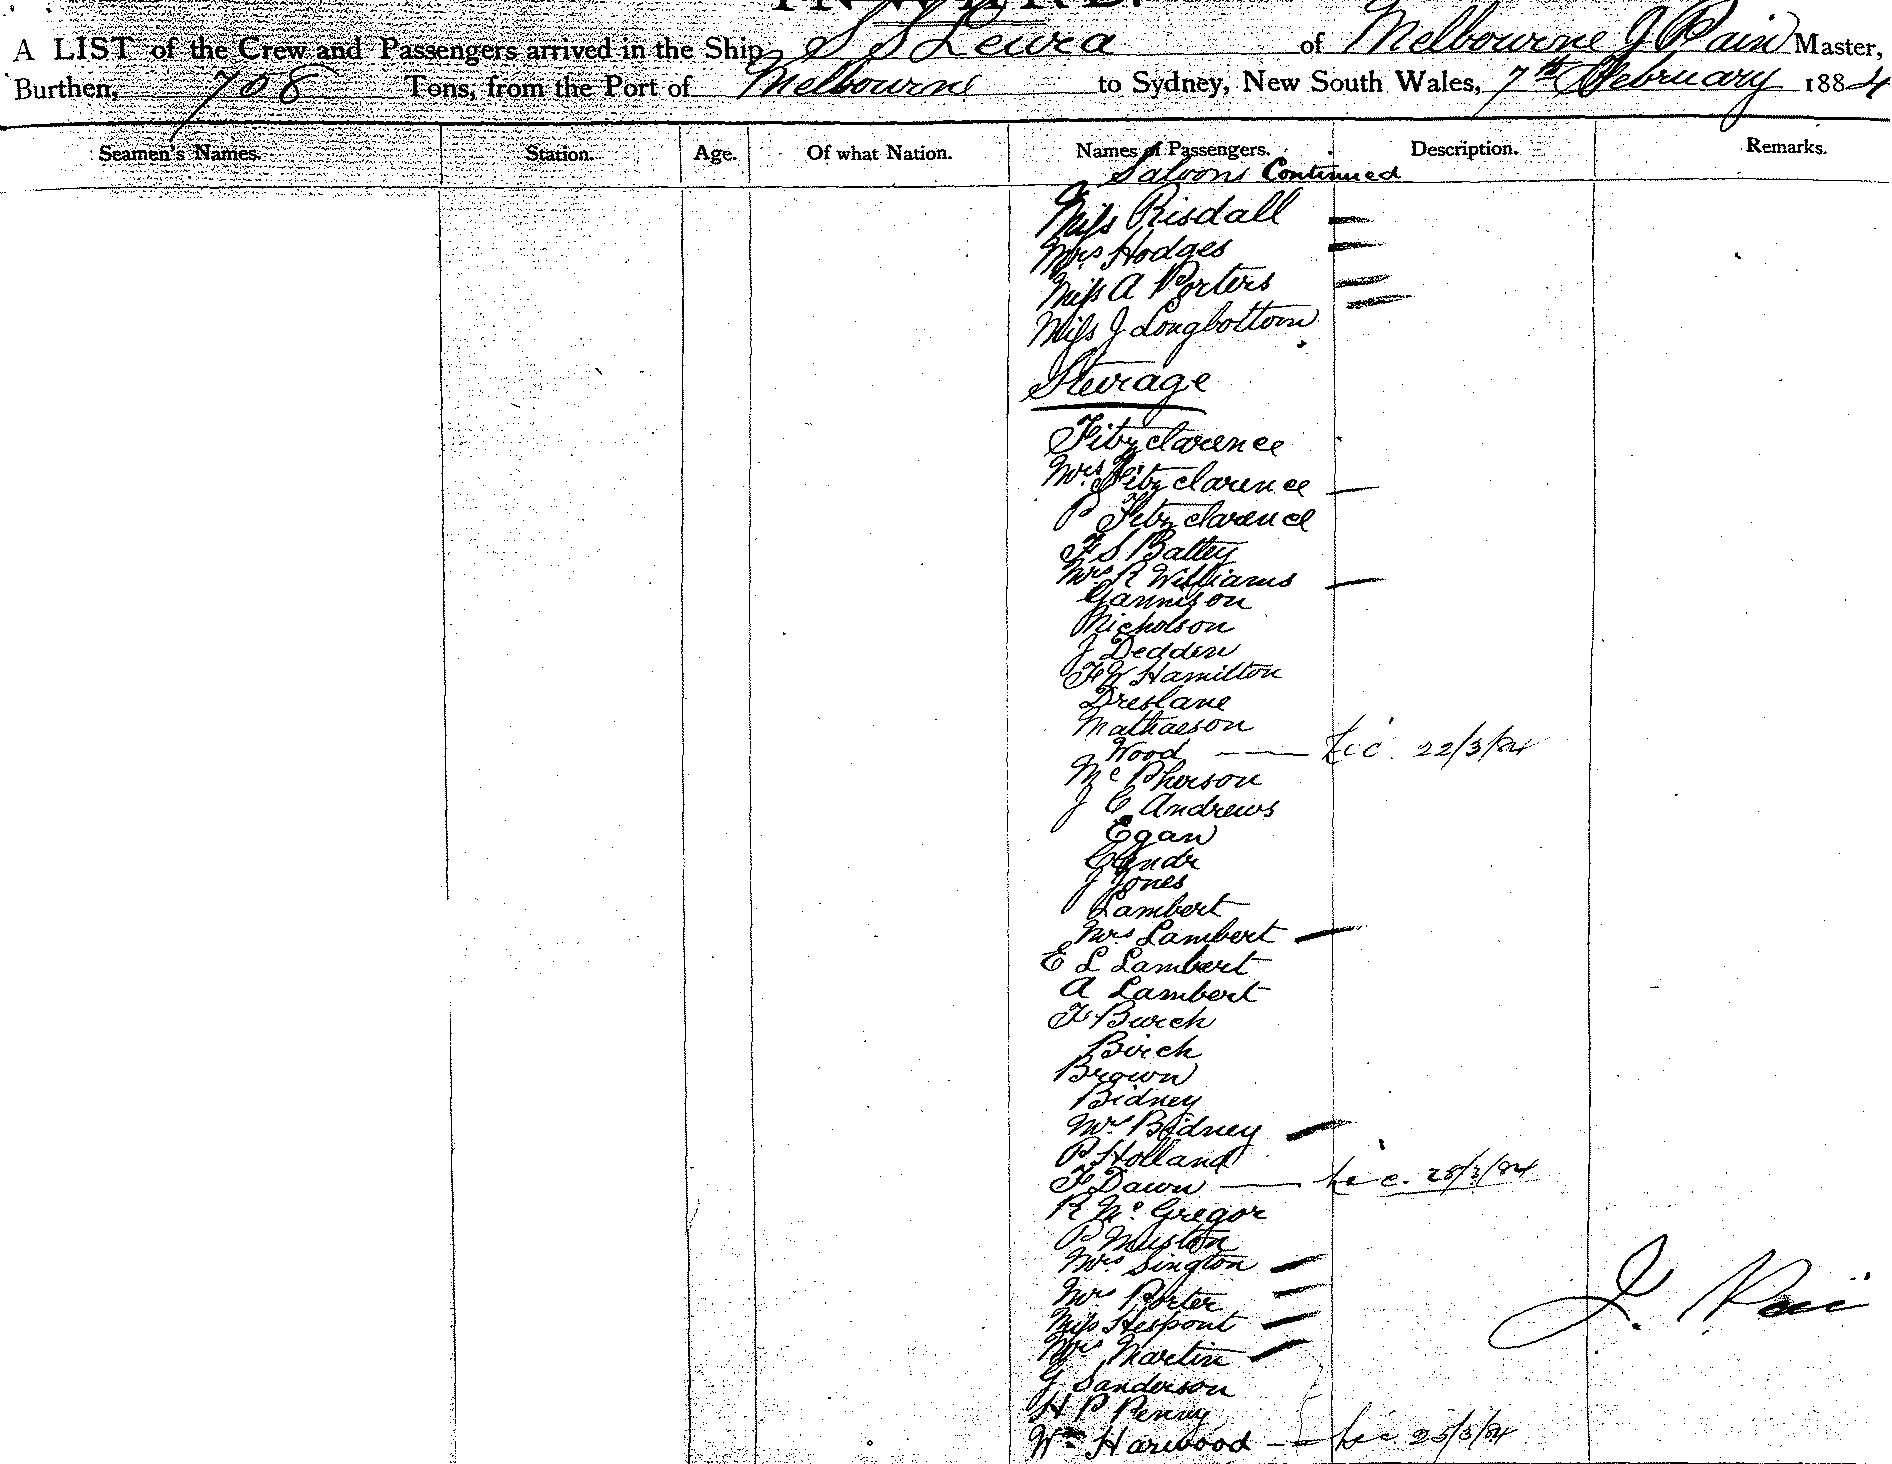 INWARD.
A LIST of the Crew and Passengers arrived in the Ship S S Leura of Melbourne J Pain Master,
Burthen, 708 Tons, from the Port of Melbourne to Sydney, New South Wales, 7th February 1884
Seamen's Names. Station. Age. Of what Nation. Names of Passengers. Description. Remarks.
Saloons Continued
Miss Risdall
Mrs Hodges
Miss A Porters
Miss J Longbottom
Steerage
Fitzclarence
Mrs Fitzclarence
P Fitzclarence
F S Battey
Mrs R Williams
Gannison
Nicholson
J Dedden
F W Hamilton
Dreslane
Mathaeson
Wood Lic. 22/3/84
Mc Pherson
J C Andrews
Egan
J Jones
Lambert
Mrs Lambert
E L Lambert
A Lambert
F Burch
Birch
Brown
Bidney
Mrs Bidney
P Holland
F Dawn Lic. 25/3/84
R Mc Gregor
P Muston
Mrs Sington
Mrs Porter
Miss Hespont
Mrs Martin
J. Pain
J Sanderson
H P Penny
Wm Harwood Lic 25/3/84